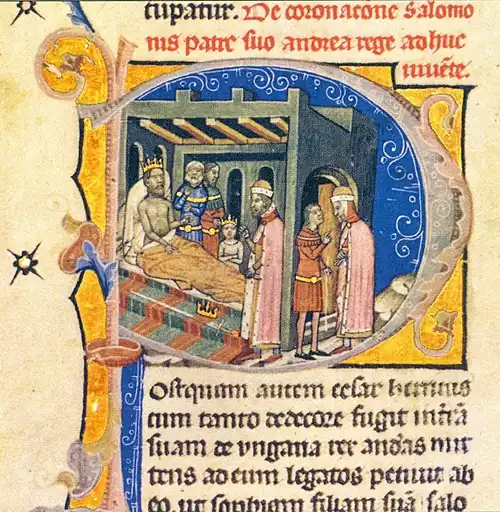 cupatur. De coronacōne Salamo
nis patre suo andrea rege adhuc
uiuēte.
Ostquam autem cesar henricus
cum tanto dedecore fugit in terrā
suam de vngaria rex andreas mit
tens ad eum legatos petiuit ab
eo, ut sophiam filiam suā salo